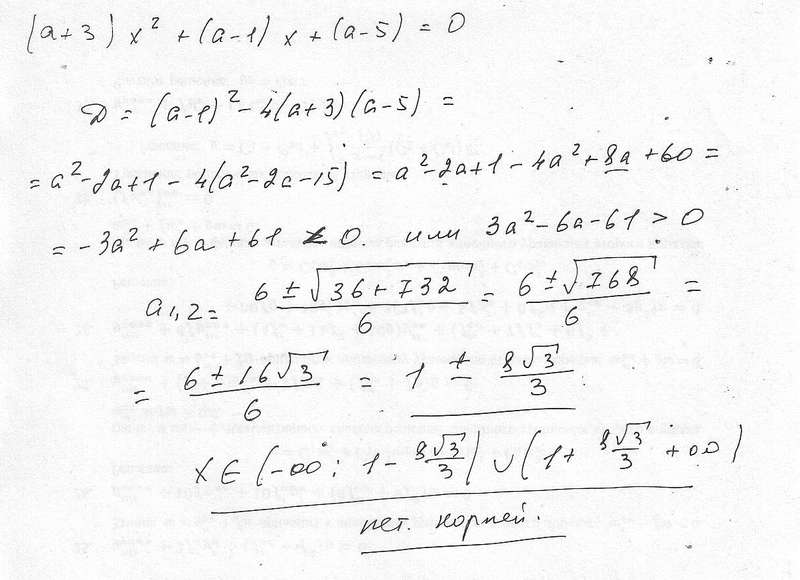 (a+3) x² + (a-1) x + (a-5) = 0
D = (a-1)² - 4(a+3)(a-5) =
= a² - 2a + 1 - 4(a² - 2a - 15) = a² - 2a + 1 - 4a² + 8a + 60 =
= -3a² + 6a + 61 < 0. или 3a² - 6a - 61 > 0
a₁,₂ = (6 ± √(36 + 732))/6 = (6 ± √768)/6 =
= (6 ± 16√3)/6 = 1 ± 8√3/3
x ∈ (-∞; 1 - 8√3/3) ∪ (1 + 8√3/3 +∞)
нет корней.